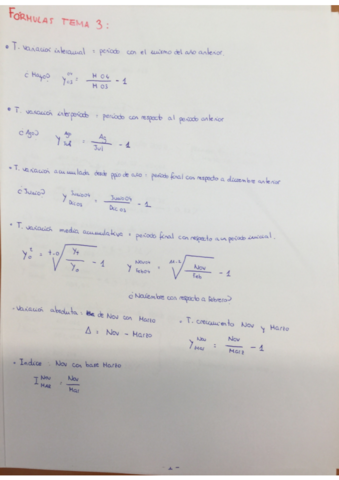 FORMULAS TEMA 3:
• T. variacion interanual = periodo con el mismo del año anterior.
¿Mayo? y = M04 / M03 - 1
• T. variacion interperiodo = periodo con respecto al periodo anterior
¿Ago? y Ago Jul = Ag / Jul - 1
• T. variacion acumulada desde ppio de año = periodo final con respecto a diciembre anterior
¿Junio? y Junio04 Dic 03 = Junio04 / Dic. 03 - 1
• T. variacion media acumulativa = periodo final con respecto a un periodo inicial.
y = √ - 1 y = √ Nov / Feb - 1
¿Noviembre con respecto a febrero?
• Variacion absoluta = de Nov con Marzo
Δ = Nov - Marzo
• T. crecimiento Nov y Marzo
y Nov Mar = Nov / Marz - 1
• Indice = Nov con base Marzo
I Nov Mar = Nov / Mar